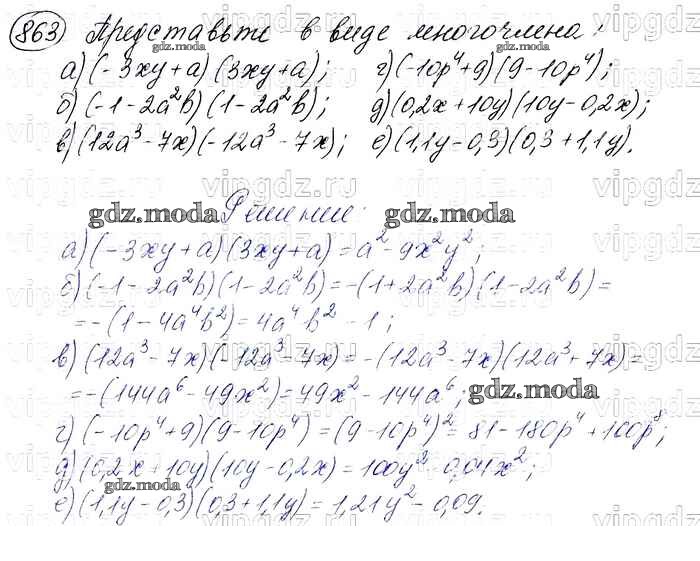 863 Представьте в виде многочлена:
а) (-3xy+a)(3xy+a); г) (-10p⁴+9)(9-10p⁴);
б) (-1-2a²b)(1-2a²b); д) (0,2x+10y)(10y-0,2x);
в) (12a³-7x)(-12a³-7x); е) (1,1y-0,3)(0,3+1,1y).
gdz.moda Решение:
а) (-3xy+a)(3xy+a)=a²-9x²y²;
б) (-1-2a²b)(1-2a²b)=-(1+2a²b)(1-2a²b)=
=-(1-4a⁴b²)=4a⁴b²-1;
в) (12a³-7x)(-12a³-7x)=-(12a³-7x)(12a³+7x)=
=-(144a⁶-49x²)=49x²-144a⁶; gdz.moda
г) (-10p⁴+9)(9-10p⁴)=(9-10p⁴)²=81-180p⁴+100p⁸;
д) (0,2x+10y)(10y-0,2x)=100y²-0,04x²;
е) (1,1y-0,3)(0,3+1,1y)=1,21y²-0,09.